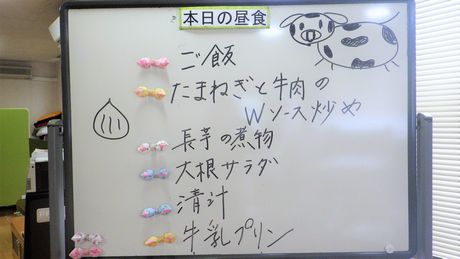 本日の昼食
ご飯
たまねぎと牛肉の
Wソース炒め
長芋の煮物
大根サラダ
清汁
牛乳プリン